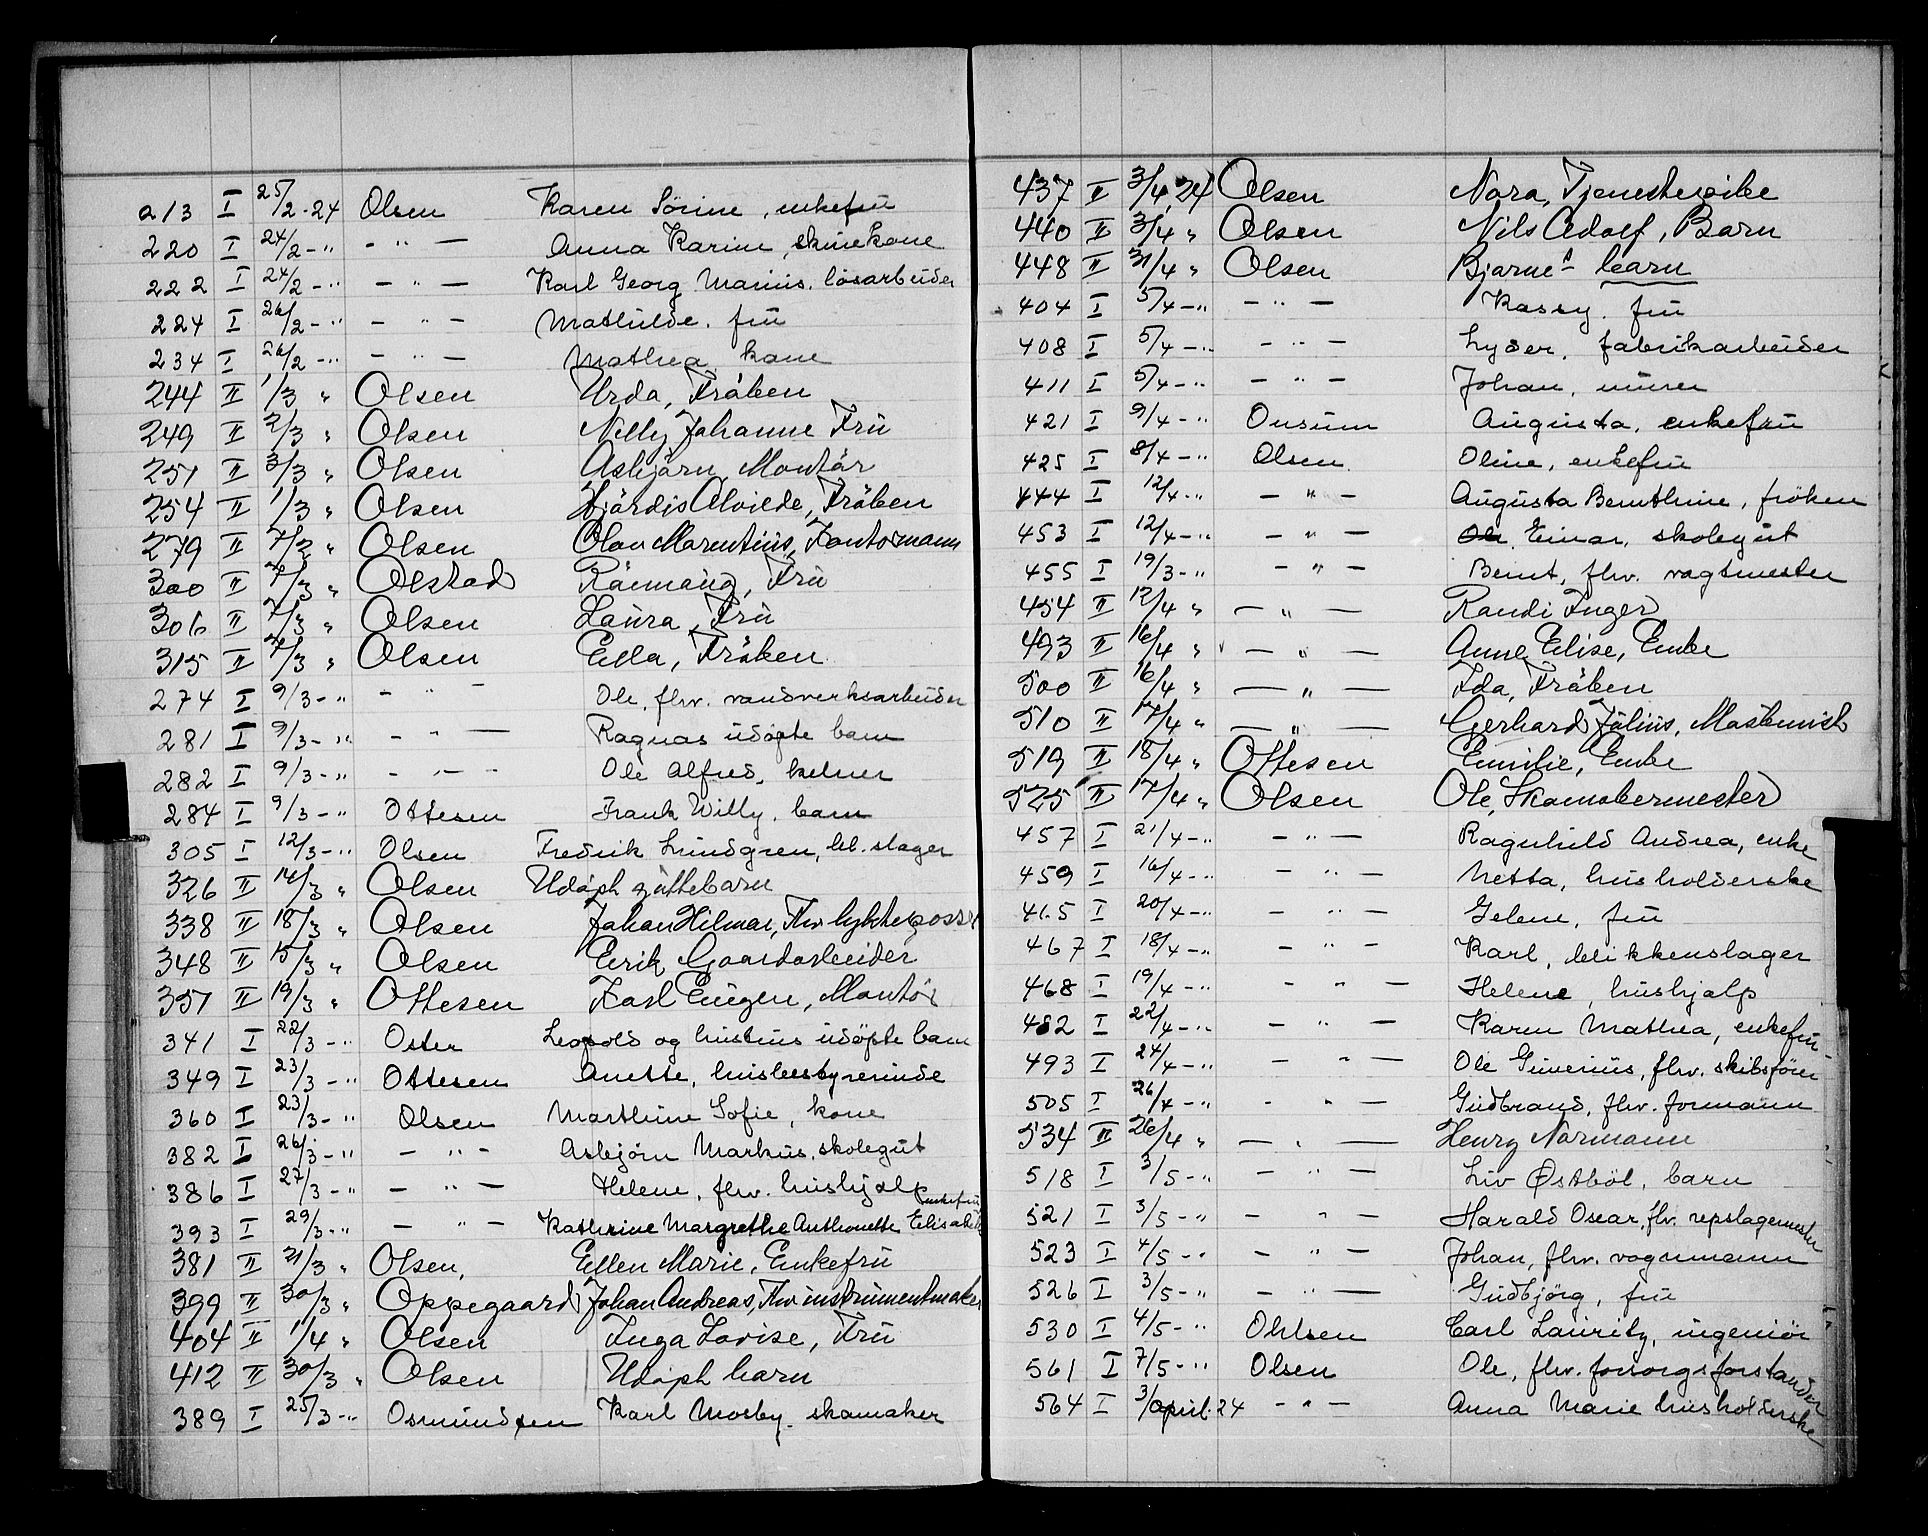 213 I 25/2-24 Olsen Karen Sörine, enkefru
220 I 24/2-" - " - Anna Karine, skinekone
222 I 24/2-" - " - Karl Georg Marius. lösarbeider
224 I 26/2-" - " - Mathilde. fru
234 I 26/2-" - " - Mathea. kone
244 II 1/3 " Olsen Urda, Fröken
249 II 2/3 " Olsen Nelly Johanne Fru
251 II 3/3 " Olsen Asbjörn, Montör
254 II 1/3 " Olsen Hjördis Alvilde, Fröken
279 II 7/2 " Olsen Olav Marentius, Kontormann
300 II 7/3 " Olstad Fru
306 II 7/3 " Olsen Laura, Fru
315 II 7/3 " Olsen Ella, Fröken
274 I 9/3-" - " - Ole, fhv. vandverksarbeider
281 I 9/3-" - " - Ragnas udöpte barn
282 I 9/3-" - " - Ole Alfred, kelner
284 I 9/3-" Ottesen Frank Willy, barn
305 I 12/3-" Olsen Fredrik Lundgren, bl. slager
326 II 14/3 " Olsen Udöpt guttebarn
338 II 18/3 " Olsen Johan Hilmar, Fhv lykteposser
348 II 15/3 " Olsen Erik Gaardarbeider
351 II 19/3 " Ottesen Karl Eugen, Montör
341 I 22/3-" Oster Leopold og hustrus udöpte barn
349 I 23/3-" Ottesen Anette, husbestyrerinde
360 I 23/3-" Olsen Marthine Sofie, kone
382 I 26/3-" - " - Asbjörn Markus. skolegut
386 I 27/3-" - " - Helene, fhv. hushjælp
393 I 29/3-" - " - Kathrine Margrethe Anthonette Elisabeth enkefru
381 II 31/3 " Olsen, Ellen Marie, Enkefru
399 II 30/3 " Oppegaard Johan Andreas, Fhv instrumentmaker
404 II 1/4 " Olsen Inga Lovise, Fru
412 II 30/3 " Olsen Udöpt barn
389 I 25/3-" Osmundsen Karl Mosby. skomaker
437 II 3/4 24 Olsen Nora, Tjenestepike
440 II 3/4 " Olsen Nils Adolf, Barn
448 II 31/4 " Olsen Bjarne's barn
404 I 5/4-" - " - Kassy. fru
408 I 5/4-" - " - Lyder. fabrikarbeider
411 I 5/4-" - " - Johan, murer
421 I 9/4-" Onsum Augusta, enkefru
425 I 8/4-" Olsen Oline, enkefru
444 I 12/4-" - " - Augusta Bernthine, fröken
453 I 12/4-" - " - Einar, skolegut
455 I 19/3-" - " - Bernt, fhv. vagtmester
454 II 12/4 " - " - Randi Inger
493 II 16/4 " - " - Anne Elise, Enke
500 II 16/4 " - " - Ida, Fröken
510 II 17/4 " - " - Gerhard Julius, Maskinist
519 II 18/4 " Ottesen Emilie, Enke
525 II 17/4 " Olsen Ole, Skomakermester
457 I 21/4-" - " - Ragnhild Andrea, enke
459 I 16/4-" - " - Netta, husholderske
465 I 20/4-" - " - Gelene, fru
467 I 18/4-" - " - Karl, blikkenslager
468 I 19/4-" - " - Helene, hushjælp
482 I 22/4-" - " - Karen Mathea, enkefru
493 I 24/4-" - " - Ole Gunerius, fhv. skibsförer
505 I 26/4-" - " - Gudbrand, fhv. formann
534 II 26/4 " - " - Henry Normann
518 I 3/5-" - " - Liv Østböl, barn
521 I 3/5-" - " - Harald Oscar, fhv. repslagermester
523 I 4/5-" - " - Johan, fhv. vognmann
526 I 3/5-" - " - Gudbjörg, fru
530 I 4/5-" Ohlsen Carl Lauritz, ingeniör
561 I 7/5-" Olsen Ole, fhv. forsorgsforstander
564 I 3/april-24 - " - Anna Marie husholderske